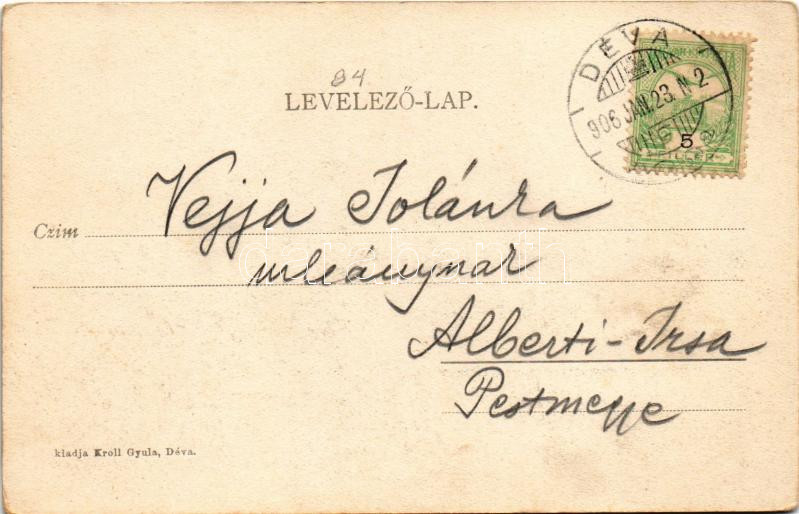 84
LEVELEZŐ-LAP.
DÉVA
906 JAN. 23. N 2
5
FILLÉR
Czim Vejja Jolánra
urleánynak
Alberti-Irsa
Pestmegye
kiadja Kroll Gyula, Déva.